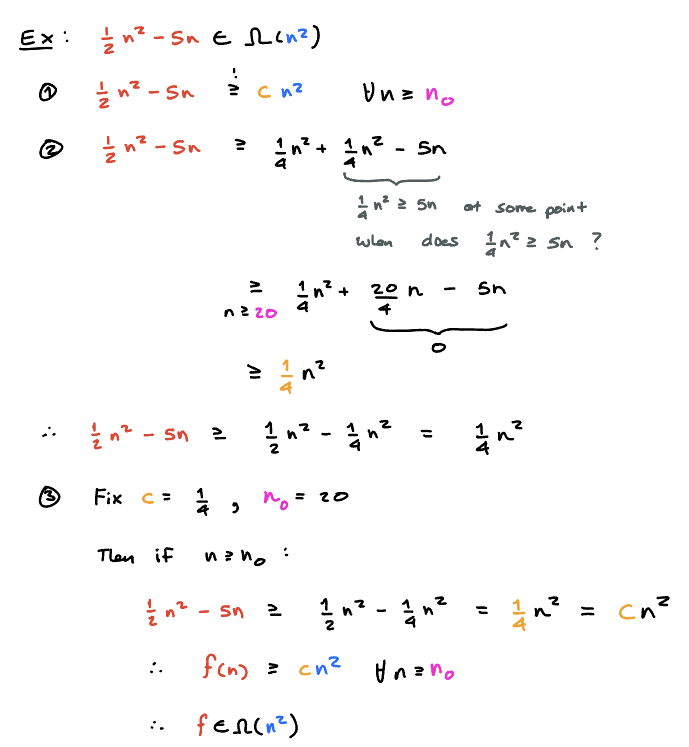 Ex: 1/2 n² - 5n ∈ Ω(n²)
① 1/2 n² - 5n ≥! c n² ∀n ≥ n₀
② 1/2 n² - 5n ≥ 1/4 n² + 1/4 n² - 5n
1/4 n² ≥ 5n at some point
when does 1/4 n² ≥ 5n ?
≥ 1/4 n² + 20/4 n - 5n
n ≥ 20
0
≥ 1/4 n²
∴ 1/2 n² - 5n ≥ 1/2 n² - 1/4 n² = 1/4 n²
③ Fix c = 1/4 , n₀ = 20
Then if n ≥ n₀ :
1/2 n² - 5n ≥ 1/2 n² - 1/4 n² = 1/4 n² = cn²
∴ f(n) ≥ cn² ∀n ≥ n₀
∴ f ∈ Ω(n²)